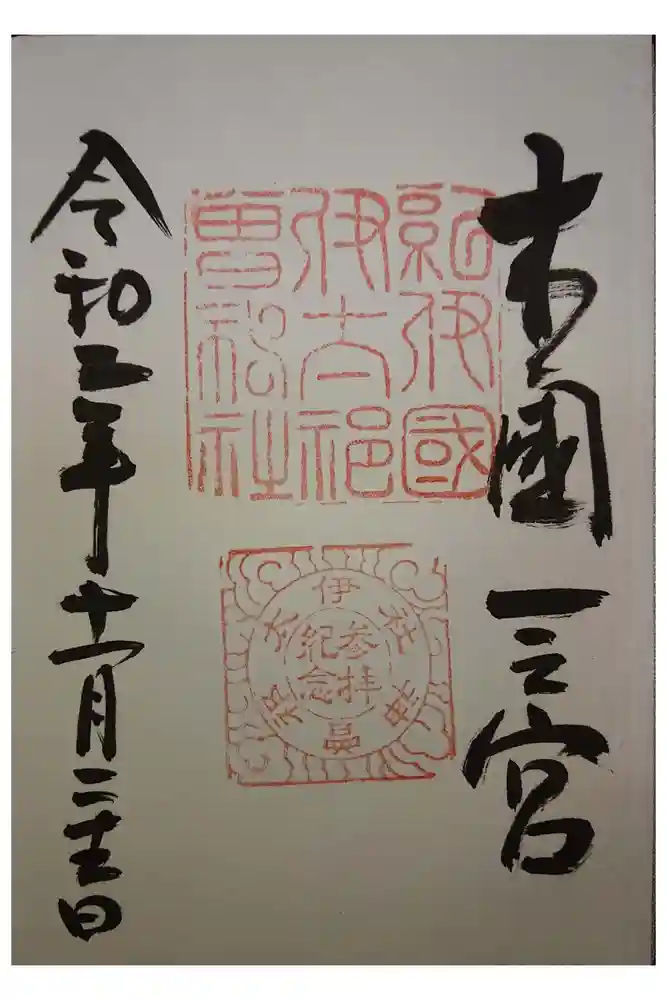 木國一之宮
紀伊國
伊太祁
曽神社
伊太祁曽神社
参拝
紀念
令和二年十一月二十二日